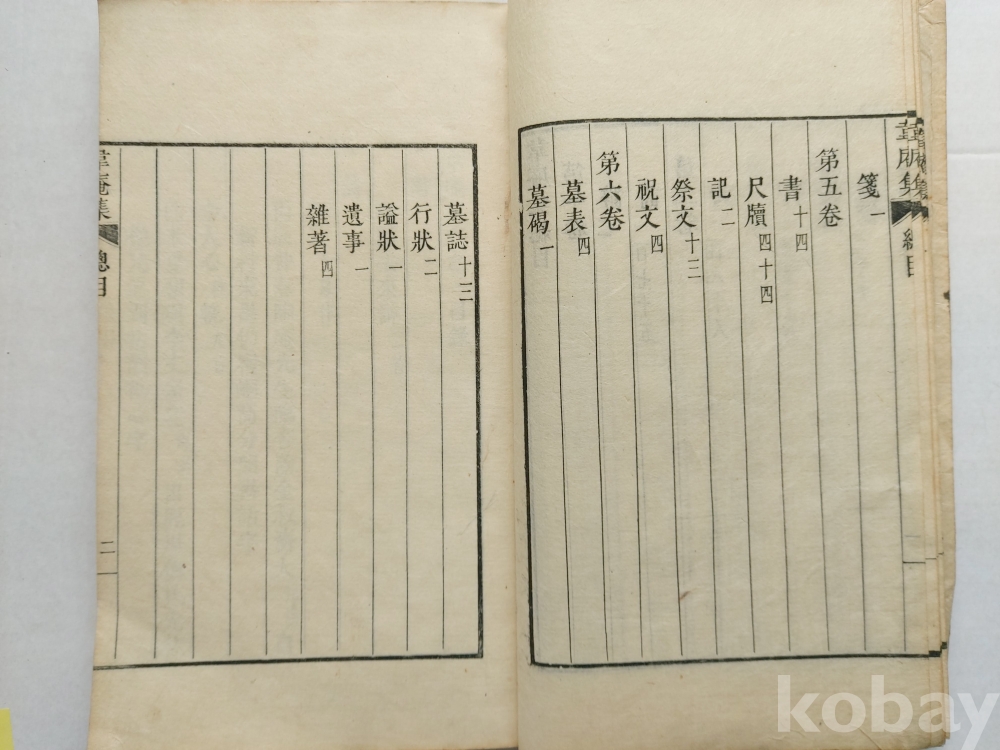 韋庵集 總目
箋一
第五卷
書十四
尺牘四十四
記二
祭文十三
祝文四
第六卷
墓表四
墓碣一
墓誌十三
行狀二
謚狀一
遺事一
雜著四
韋庵集 總目 二
kobay